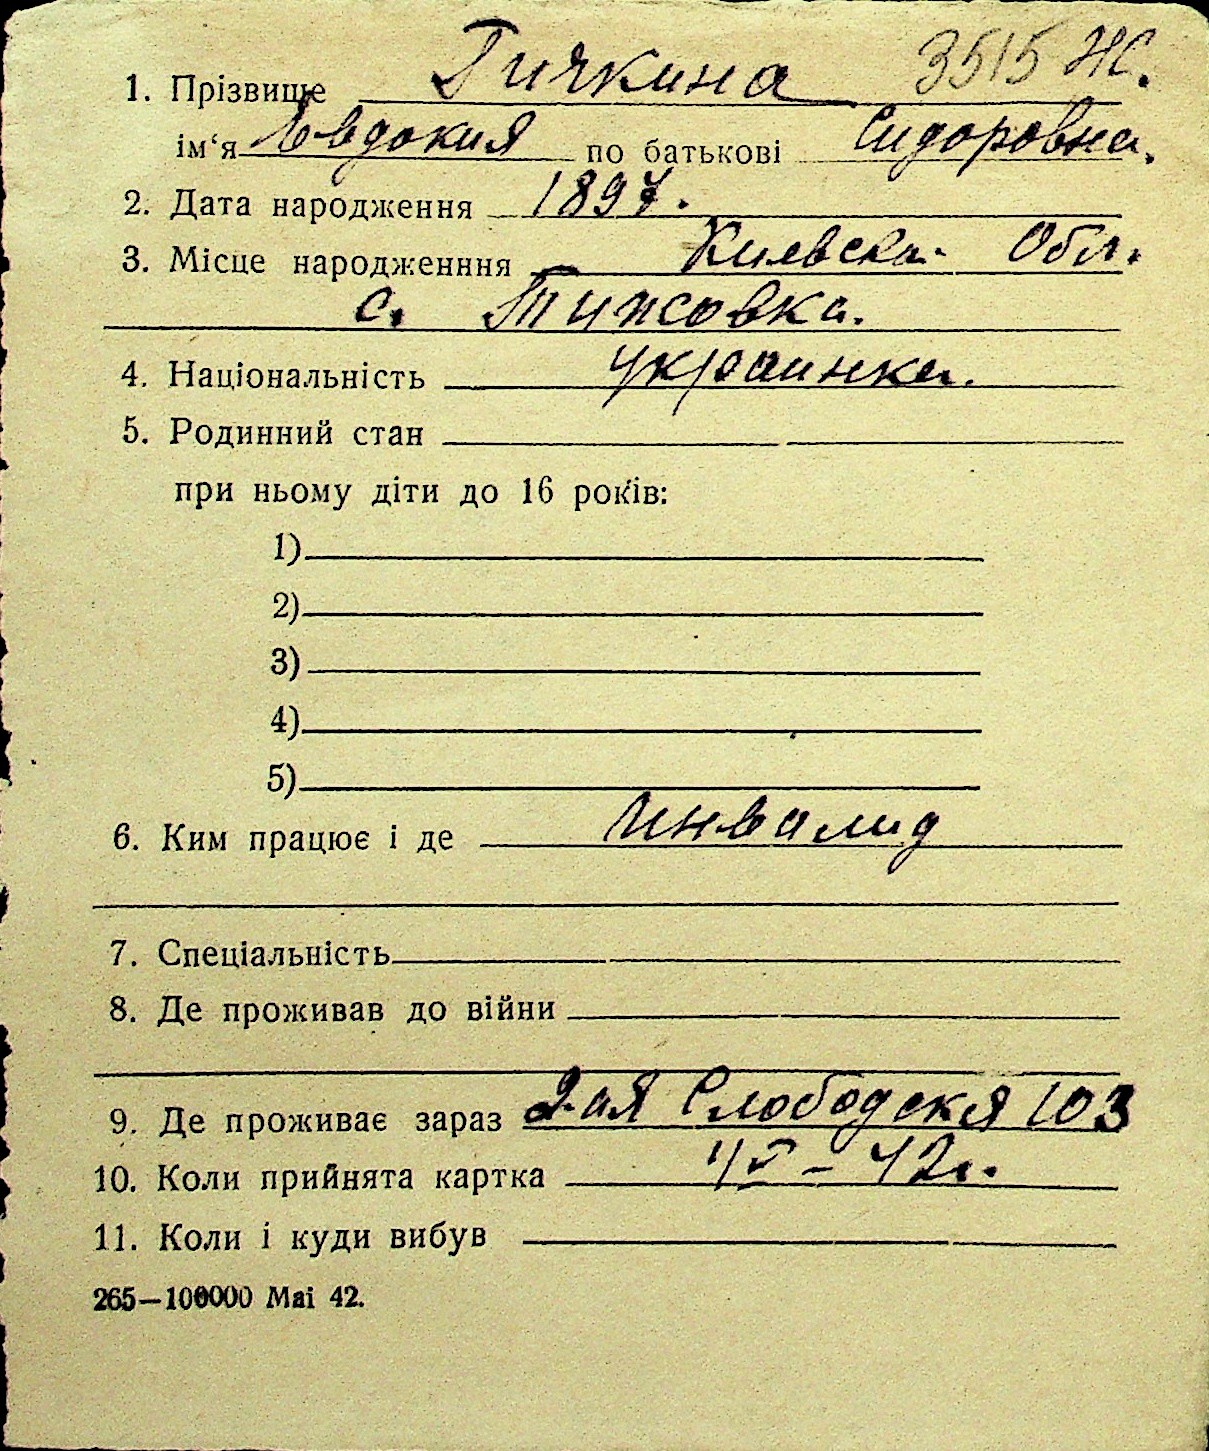 3515 Ж.
1. Прізвище Гичкина
ім‘я Евдокия по батькові Сидоровна.
2. Дата народження 1897.
3. Місце народженння Киевска. Обл.
с. Тижовка.
4. Національність украинка.
5. Родинний стан
при ньому діти до 16 років:
1)
2)
3)
4)
5)
6. Ким працює і де Инвалид
7. Спеціальність
8. Де проживав до війни
9. Де проживає зараз 2-ая Слободская 103
10. Коли прийнята картка 42г.
11. Коли і куди вибув
265—100000 Mai 42.